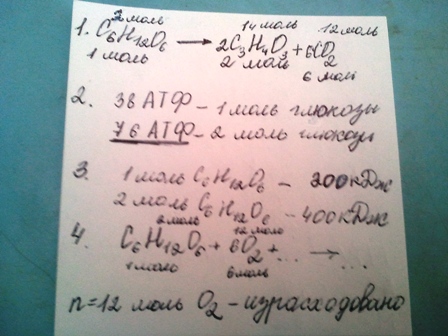 2 моль 14 моль 12 моль
1. C6H12O6 → 2C3H4O3 + 6CO2
1 моль 2 моль 6 моль
2. 38 АТФ – 1 моль глюкозы
76 АТФ – 2 моль глюкозы
3. 1 моль C6H12O6 – 200 кДж
2 моль C6H12O6 – 400 кДж
2 моль 12 моль
4. C6H12O6 + 6O2 + ... → ...
1 моль 6 моль
n = 12 моль O2 – израсходовано